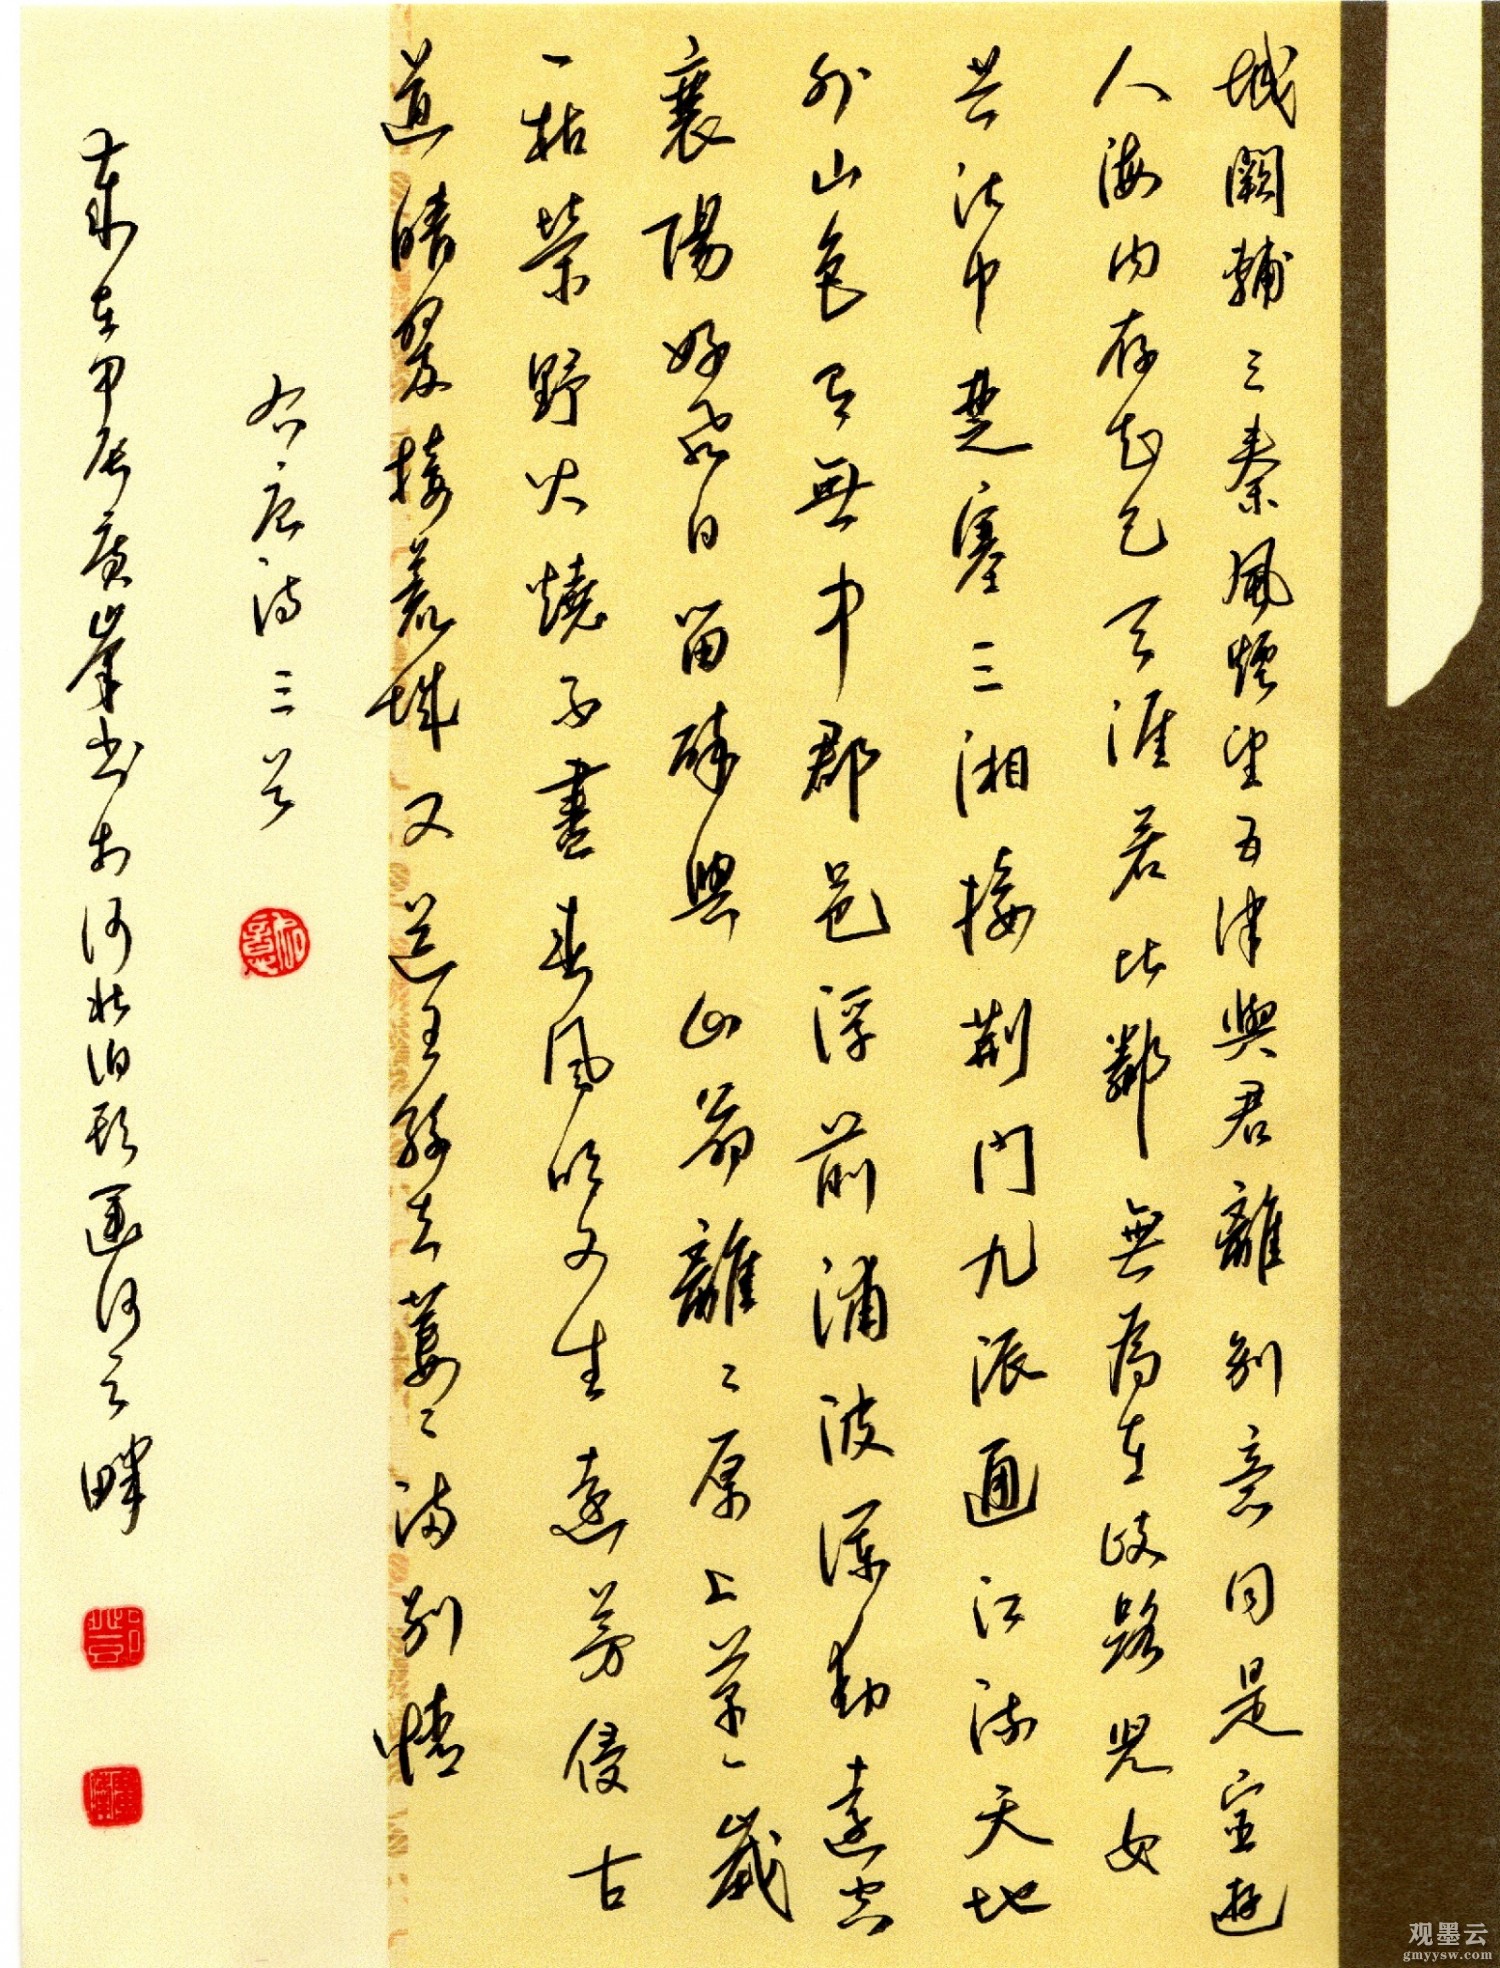 城闕輔三秦風煙望五津與君離別意同是宦遊
人海内存知己天涯若比鄰無為在歧路兒女
共沾巾楚塞三湘接荊門九派通江流天地
外山色有無中郡邑浮前浦波瀾動遠空
襄陽好風日留醉與山翁離〻原上草一歲
一枯榮野火燒不盡春風吹又生遠芳侵古
道晴翠接荒城又送王孫去萋〻滿別情
右唐詩三首
在甲辰廣峯書於河北泊頭運河之畔
观墨云
gmyysw.com